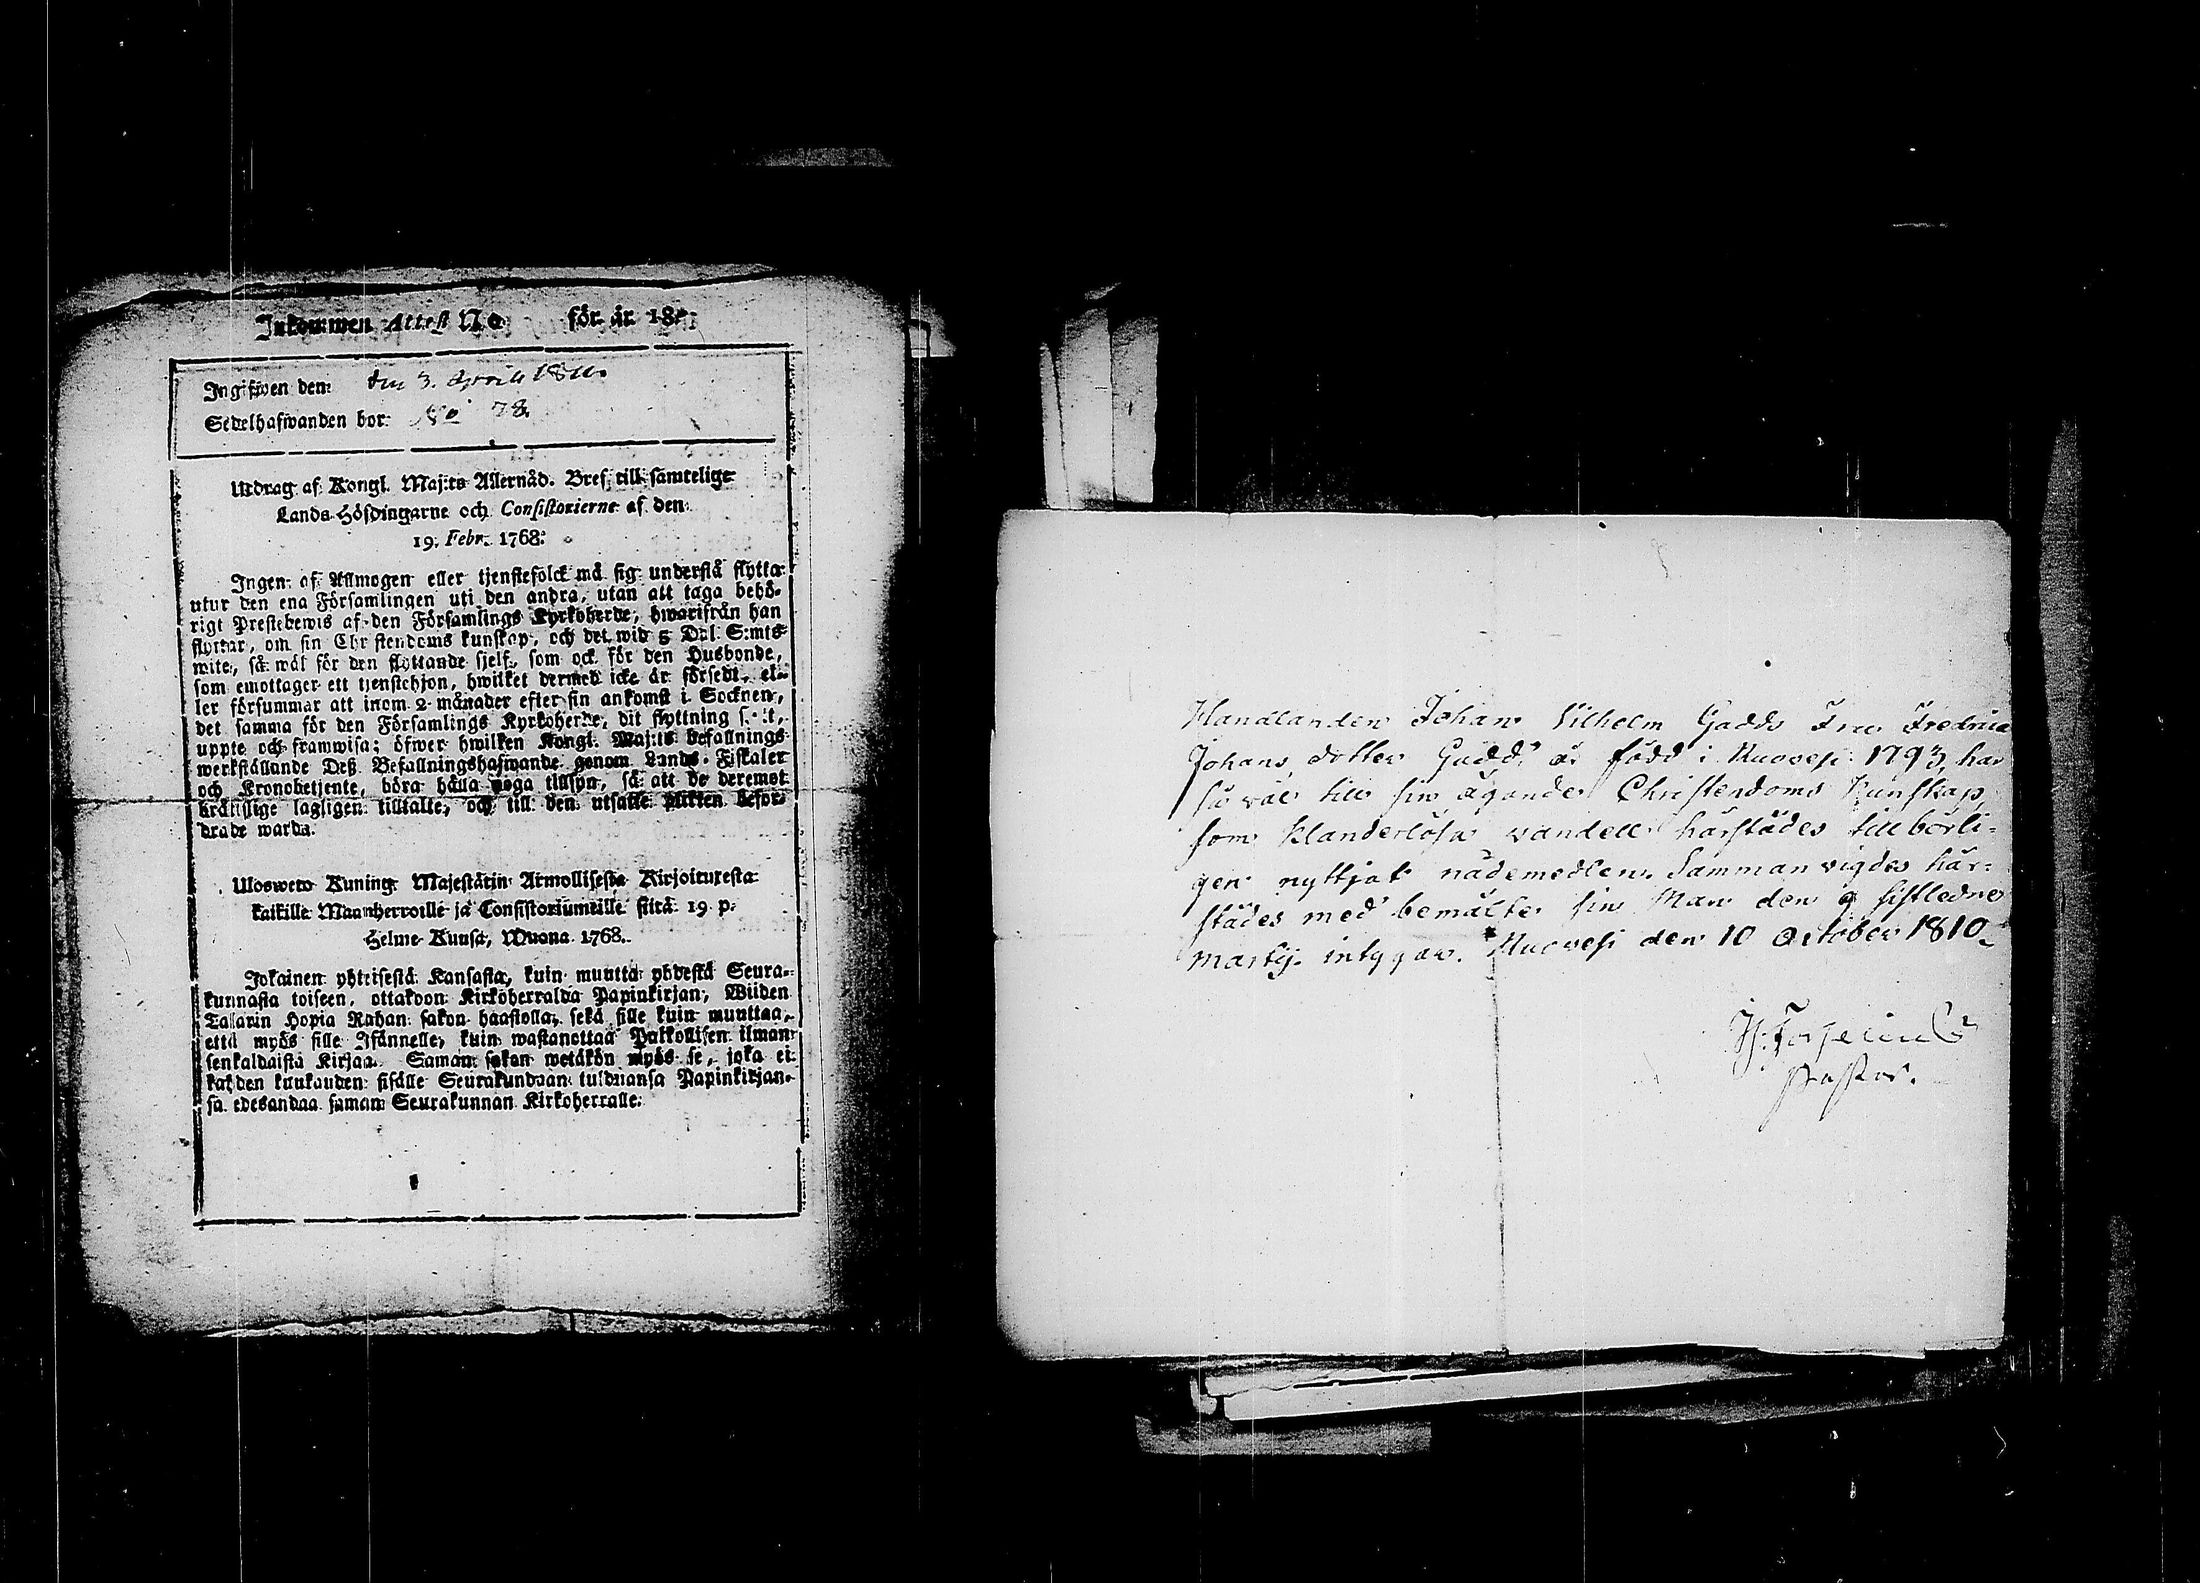 Inkommen Attest No för år 18
Ingifwen den: den 3. Aprill 1811.
Sedelhafwanden bor: No 78.
Utdrag af Kongl. Maj:ts Allernåd. Bref till samtelige
Lands-Höfdingarne och Consistorierne af den
19. Febr. 1768.
Ingen af Allmogen eller tjenstefolck må sig understå flytta
utur den ena Församlingen uti den andra, utan att taga behö-
rigt Prestebewis af den Församlings Kyrkoherde, hwarifrån han
flyttar, om sin Christendoms kunskap, och det wid 5 Dal. S:mts
wite, så wäl för den flyttande sjelf, som ock för den Husbonde,
som emottager ett tjenstehjon, hwilket dermed icke är försedt, el-
ler försummar att inom 2 månader efter sin ankomst i Socknen,
det samma för den Församlings Kyrkoherde, dit flyttning skett,
uppte och framwisa; öfwer hwilken Kongl. Maj:ts befallnings
werkställande Deß Befallningshafwande genom Lands-Fiskaler
och Kronobetjente, böra hålla noga tillsyn, så att de deremot
bråttslige lagligen tilltalte, och till den utsatte plikten befor-
drade warda.
Uloswetо Kuning. Majestätin Armollisesta Kirjoituxesta
kaikille Maanherroille ja Consistoriumeille siitä 19 p.
Helme-Kuusa, Wuona 1768.
Jokainen yhteisestä Kansasta, kuin muutta yhdestä Seura-
kunnasta toiseen, ottakoon Kirkoherralda Papinkirjan, Wiiden
Talarin Hopia Rahan sakon haastolla, sekä sille kuin muuttaa,
että myös sille Isännelle, kuin wastanottaa Palkollisen ilman
senkaldaista Kirjaa. Saman sakon wetäkön myös se, joka ei
kahden kuukauden sisälle Seurakundaan tulduansa Papinkirjan-
sa edesandaa saman Seurakunnan Kirkoherralle.
Handlanden Johan Vilhelm Gadds Fru Fredrica
Johans dotter Gadd, är född i Ruovesi 1793, har
så väl till sin ägande Christendoms Kunskap,
som klanderlösa vandell härstädes tillbörli-
gen nyttjat nådemedlen. Samman vigdes här-
städes med bemälte sin Man den 9 sistledne
martij. intygar. Ruovesi den 10 October 1810.
Pastor.